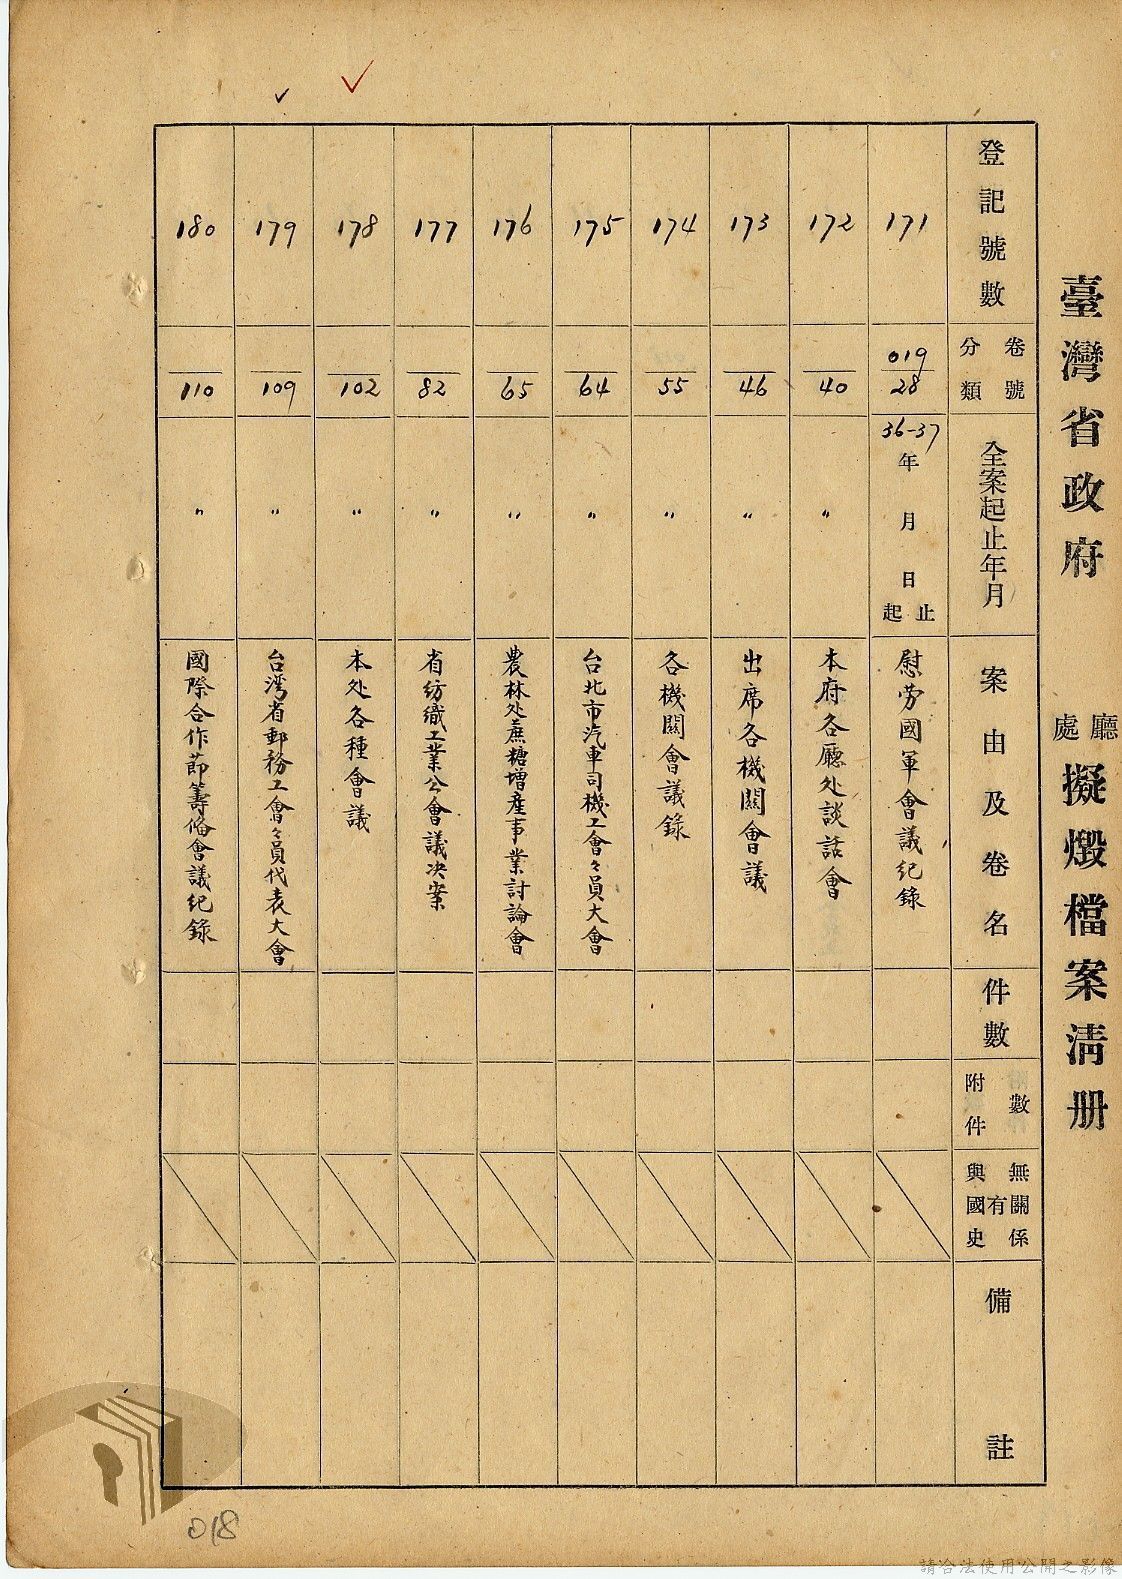 臺灣省政府 廳處 擬燬檔案清册
登記號數 分類卷號 全案起止年月 案由及卷名 件數 附件數 與國史有無關係 備註
171 019/28 36-37年月日起止 慰劳國軍會議紀錄
172 40 〃 本府各廳处談話會
173 46 〃 出席各機關會議
174 55 〃 各機關會議錄
175 64 〃 台北市汽車司機工會々員大會
176 65 〃 農林处蔗糖增產事業討論會
177 82 〃 省紡織工業公會議决案
178 102 〃 本处各種會議
179 109 〃 台湾省郵務工會々員代表大會
180 110 〃 國際合作節籌備會議紀錄
018
請合法使用公開之影像